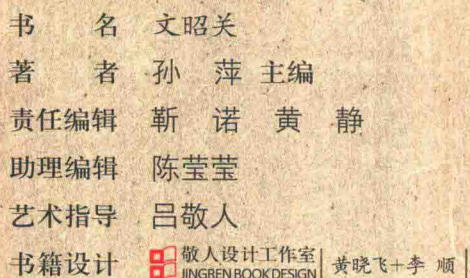 书 名 文昭关
著 者 孙 萍 主编
责任编辑 靳 诺 黄 静
助理编辑 陈莹莹
艺术指导 吕敬人
书籍设计 敬人设计工作室 黄晓飞+李 顺
JINGREN BOOK DESIGN